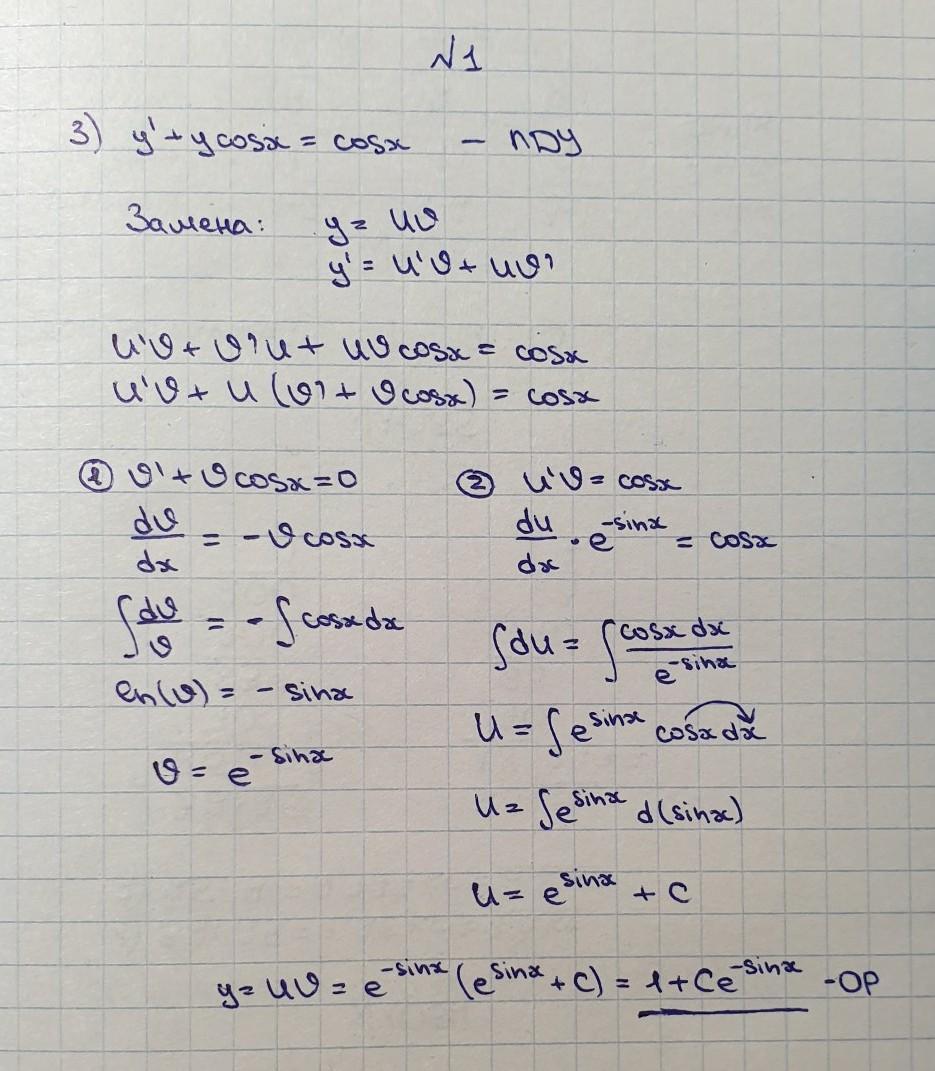 №1
3) y' + y cosx = cosx — ЛДУ
Замена: y = uϑ
y' = u'ϑ + uϑ'
u'ϑ + ϑ'u + uϑ cosx = cosx
u'ϑ + u (ϑ' + ϑ cosx) = cosx
① ϑ' + ϑ cosx = 0
dϑ/dx = -ϑ cosx
∫ dϑ/ϑ = -∫ cosx dx
ln(ϑ) = - sinx
ϑ = e^(-sinx)
② u'ϑ = cosx
du/dx · e^(-sinx) = cosx
∫ du = ∫ cosx dx / e^(-sinx)
u = ∫ e^(sinx) cosx dx
u = ∫ e^(sinx) d(sinx)
u = e^(sinx) + C
y = uϑ = e^(-sinx) (e^(sinx) + C) = 1 + Ce^(-sinx) - ОР